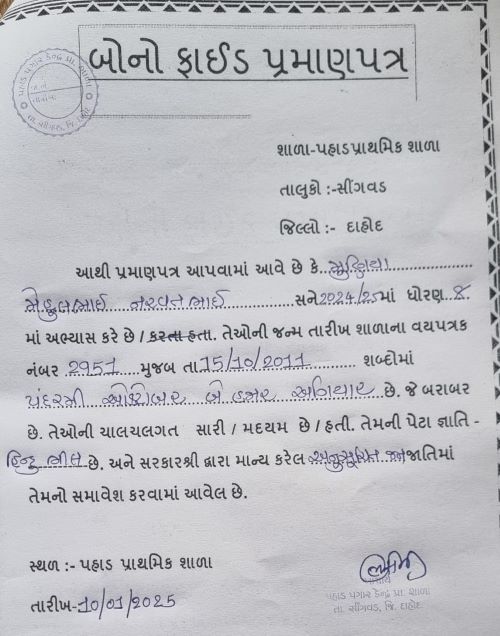 બોનો ફાઈડ પ્રમાણપત્ર
શાળા-પહાડપ્રાથમિક શાળા
તાલુકો :-સીંગવડ
જિલ્લો :- દાહોદ
આથી પ્રમાણપત્ર આપવામાં આવે છે કે.
મેહુલભાઈ નરવતભાઈ સને 2024/25માં ધોરણ 8
માં અભ્યાસ કરે છે / કરતા હતા. તેઓની જન્મ તારીખ શાળાના વયપત્રક
નંબર 2951 મુજબ તા 15/10/2011 શબ્દોમાં
પંદરમી ઓક્ટોબર બે હજાર અગિયાર છે. જે બરાબર
છે. તેઓની ચાલચલગત સારી / મધ્યમ છે / હતી. તેમની પેટા જ્ઞાતિ -
હિન્દુ ભીલ છે. અને સરકારશ્રી દ્વારા માન્ય કરેલ અનુસૂચિત જનજાતિમાં
તેમનો સમાવેશ કરવામાં આવેલ છે.
સ્થળ :- પહાડ પ્રાથમિક શાળા
તારીખ-10/01/2025
આચાર્ય
પહાડ પગાર કેન્દ્ર પ્રા. શાળા
તા. સીંગવડ, જિ. દાહોદ